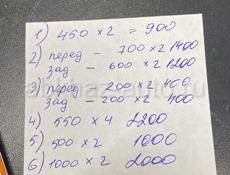 1) 450 × 2 = 900
2) перед – 700 × 2 1400
зад – 600 × 2 1200
3) перед – 200 × 2 400
зад – 200 × 2 400
4) 550 × 4 2200
5) 500 × 2 1000
6) 1000 × 2 2000